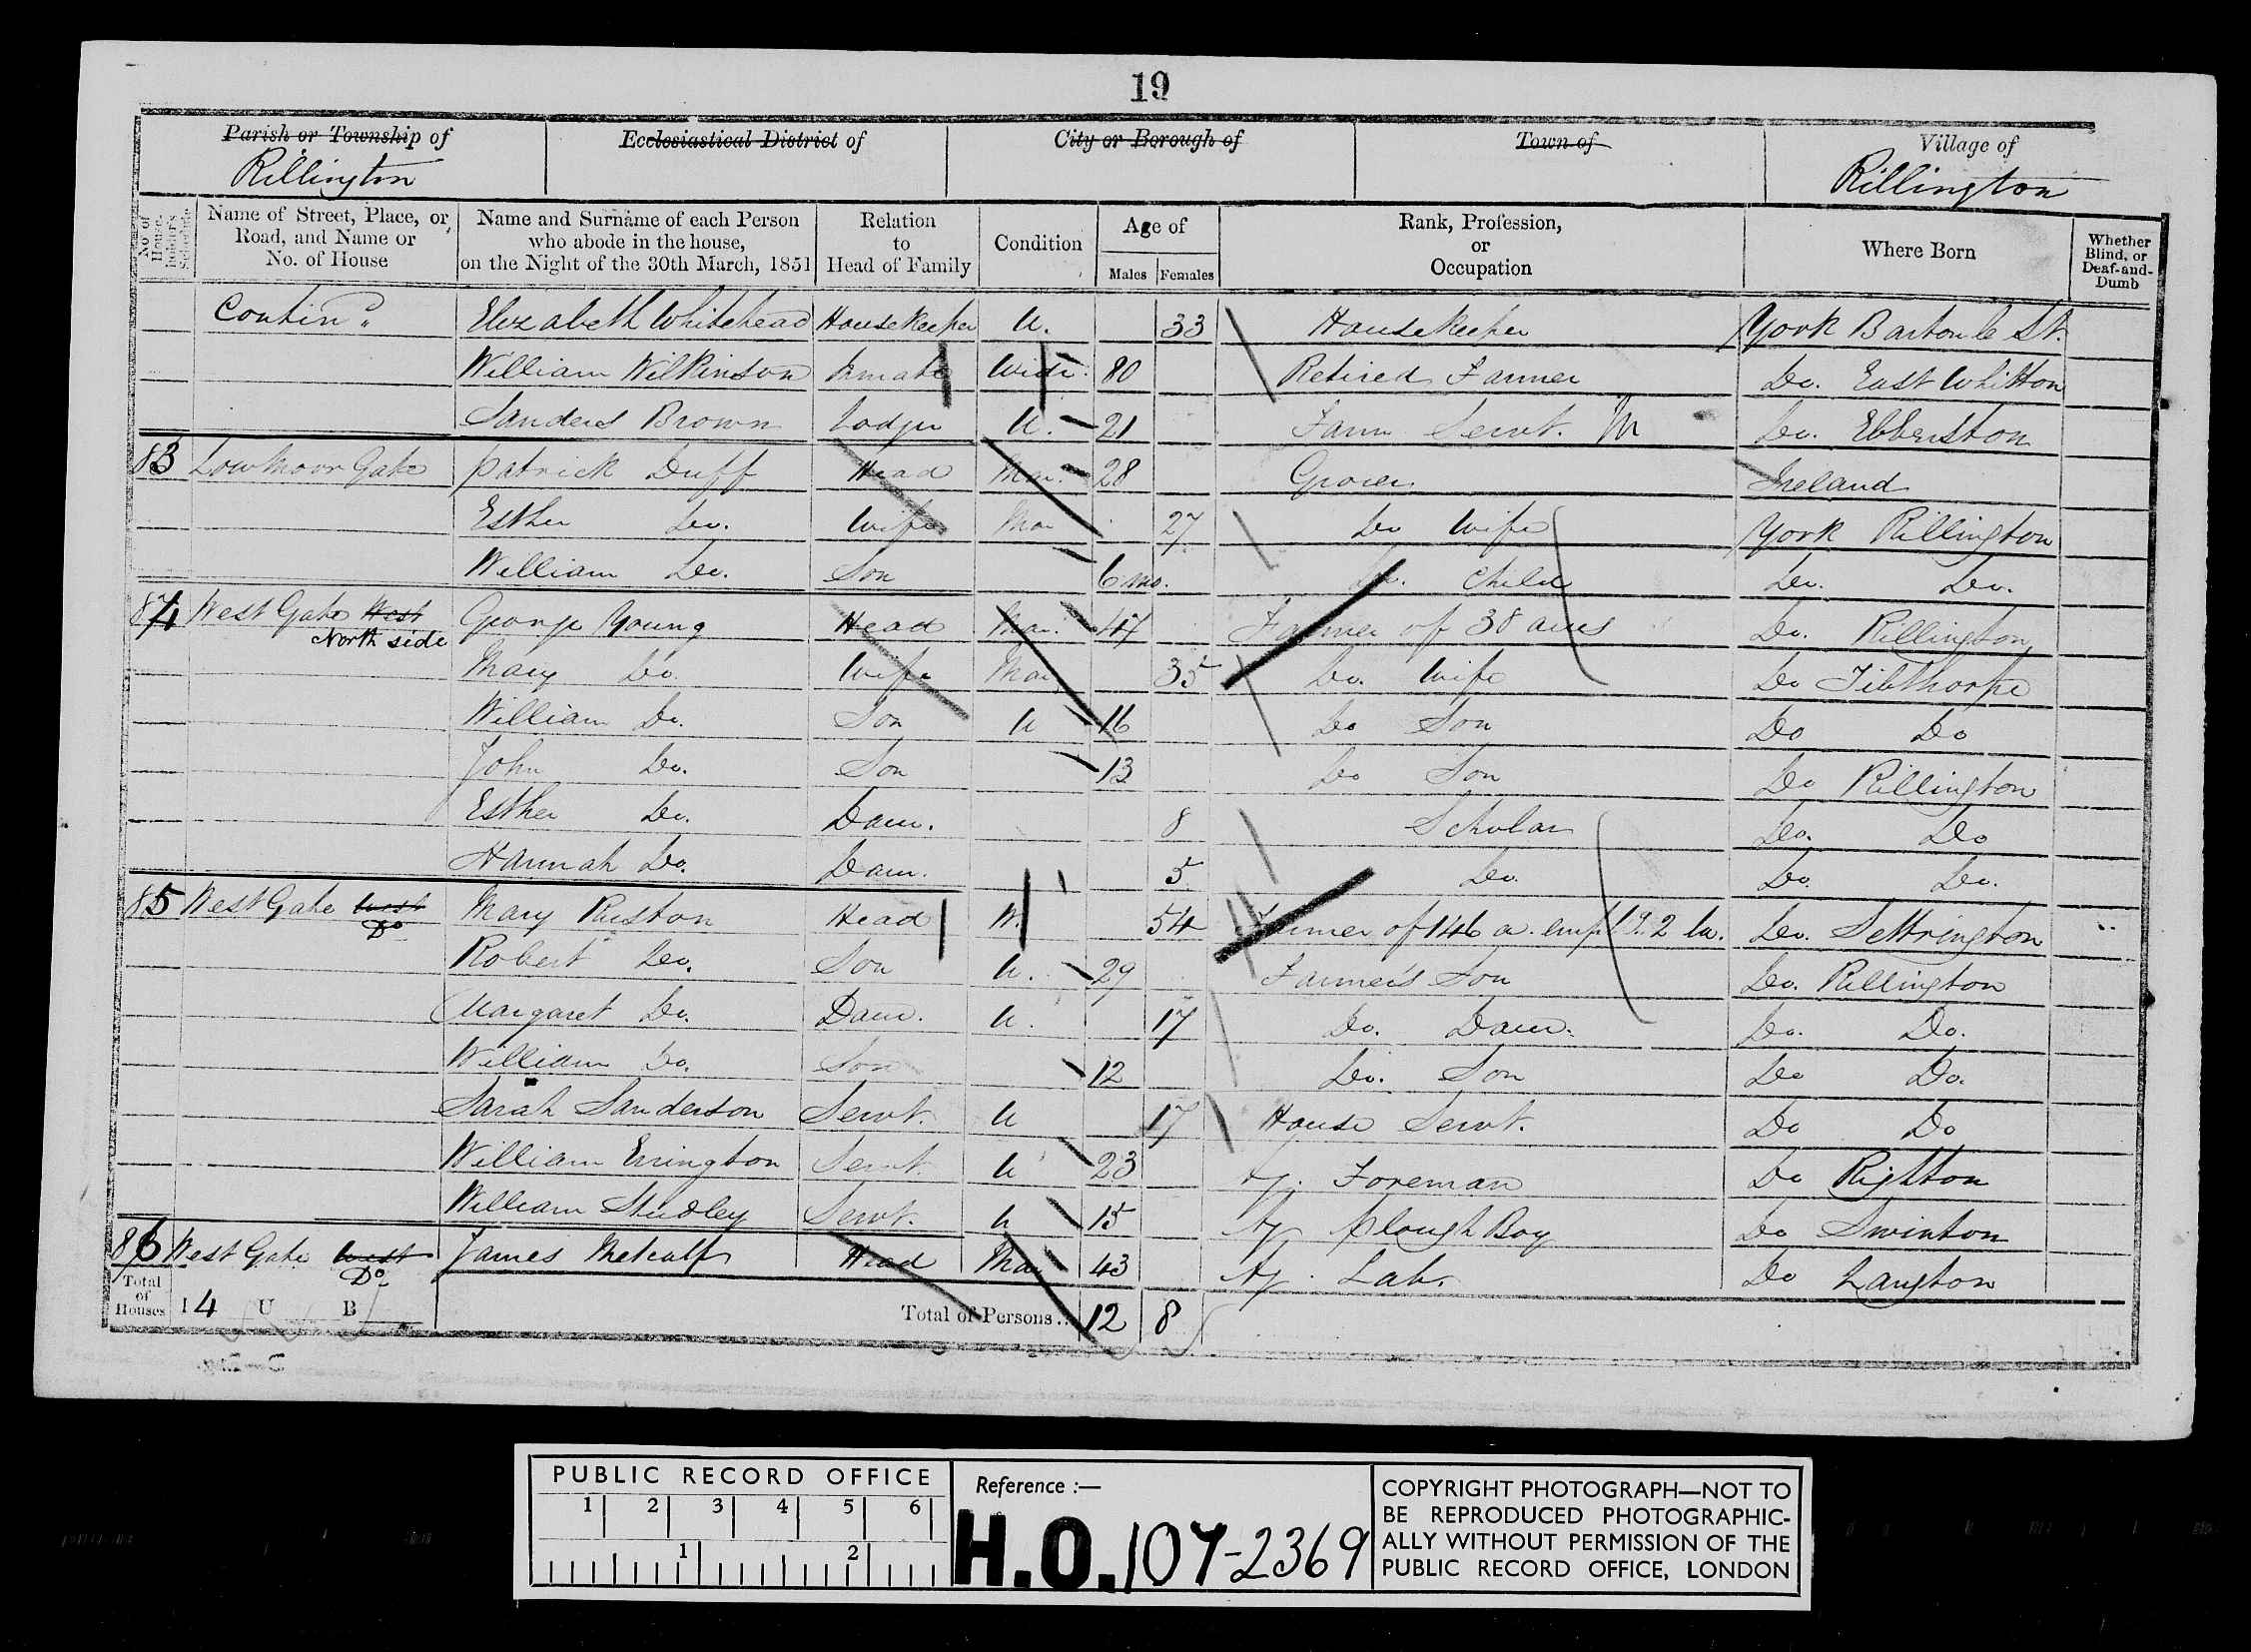 19
Parish or Township of
Ecclesiastical District of
City or Borough of
Town of
Village of
Rillington
Rillington
No. of House-holder's Schedule
Name of Street, Place, or Road, and Name or No. of House
Name and Surname of each Person who abode in the house, on the Night of the 30th March, 1851
Relation to Head of Family
Condition
Age of
Males Females
Rank, Profession, or Occupation
Where Born
Whether Blind, or Deaf-and-Dumb
Contind. Elizabeth Whitehead Housekeeper U. 33 Housekeeper York Barton le St.
William Wilkinson Inmate Widr. 80 Retired Farmer Do. East Whitton
Sanders Brown Lodger U. 21 Farm Servt. M Do. Ebberston
83 Low Moor Gate Patrick Duff Head Mar. 28 Grocer Ireland
Esther Do. Wife Mar 27 Do Wife York Rillington
William Do. Son 6 mo. Do. Child Do. Do.
84 West Gate West George Young Head Mar. 47 Farmer of 38 acres Do. Rillington
North side
Mary Do. Wife Mar 35 Do. Wife Do Tibthorpe
William Do. Son U 16 Do Son Do Do
John Do. Son 13 Do Son Do Rillington
Esther Do. Daur. 8 Scholar Do. Do
Hannah Do. Daur. 5 Do. Do. Do.
85 West Gate West Mary Ruston Head W. 54 Farmer of 146 a. empl.g 2 la. Do. Settrington
Do
Robert Do. Son U. 29 Farmer's Son Do. Rillington
Margaret Do. Daur. U. 17 Do. Daur. Do. Do.
William Do. Son 12 Do. Son Do Do.
Sarah Sanderson Servt. U 17 House Servt. Do Do
William Errington Servt. U 23 Ag. Foreman Do Righton
William Studley Servt. U 15 Ag Plough Boy Do Swinton
86 West Gate West James Metcalf Head Mar 43 Ag. Lab. Do Langton
Do
Total of Houses I 4 U B
Total of Persons.. 12 8
PUBLIC RECORD OFFICE
1 2 3 4 5 6
1 2
Reference :—
H.O. 107-2369
COPYRIGHT PHOTOGRAPH—NOT TO
BE REPRODUCED PHOTOGRAPHIC-
ALLY WITHOUT PERMISSION OF THE
PUBLIC RECORD OFFICE, LONDON